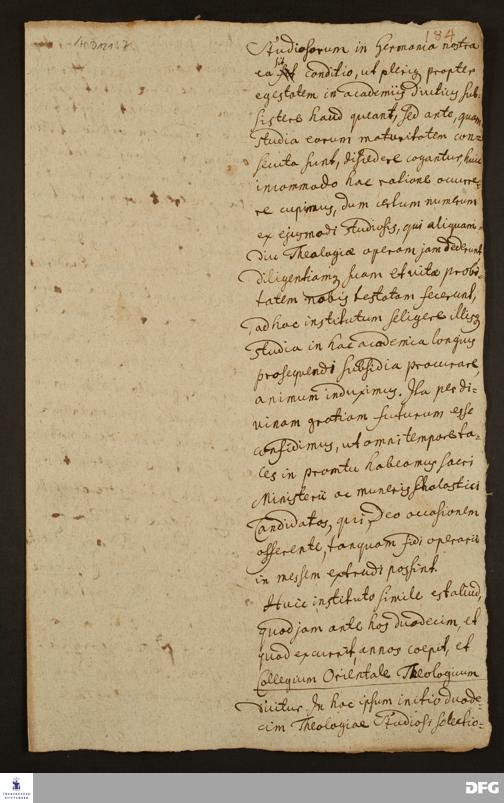 184
Studiosorum in Germania nostra
ea sit conditio, ut pleriq propter
egestatem in academijs diutius sub-
sistere haud queant, sed ante, quam
studia eorum maturitatem con-
secuta sunt, discedere cogantur, huic
incommodo hac ratione occurre-
re cupimus, dum certum numerum
ex ejusmodi Studiosis, qui aliquam-
diu Theologiæ operam jam dederunt
diligentiamq suam et vitæ probi-
tatem nobis testatam fecerunt,
ad hoc institutum seligere illisq
studia in hac academia longius
prosequendi subsidia procurare,
animum induximus. Ita per di-
vinam gratiam futurum esse
confidimus, ut omni tempore ta-
les in promtu habeamus sacri
Ministerii ac muneris scholastici
Candidatos, qui, Deo occasionem
offerente, tanquam fidi operarii
in messem extrudi possint.
Huic instituto simile est aliud,
quod jam ante hos duodecim, et
quod excurrit, annos coepit, et
Collegium Orientale Theologicum
vocitur. In hac ipsum initio duode-
cim Theologiae Studiosi selectio-
FRANCKESCHE STIFTUNGEN
DFG